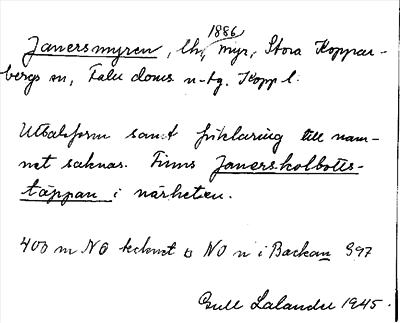 1886
Janersmyren, lh, myr, Stora Koppar-
bergs sn, Falu doms u-tg. Kopp l.
Uttalsform samt förklaring till nam-
net saknas. Finns Janerskolbotts-
täppan i närheten.
400 m NO tecknet o NO n i Backan 397
Gull Lalander 1945.